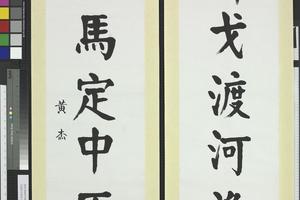 戈渡河
馬定中
黃杰